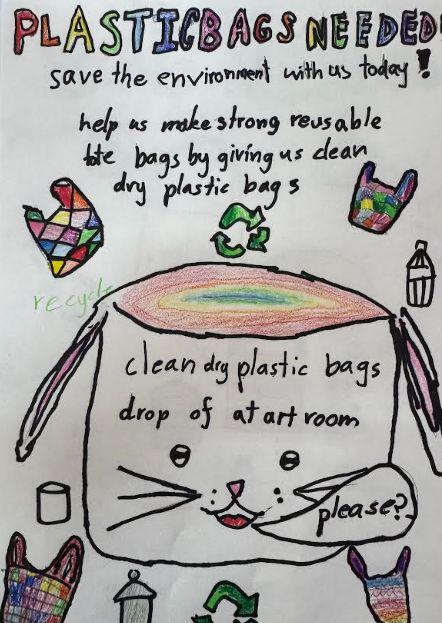 PLASTIC BAGS NEEDED
save the environment with us today!
help us make strong reusable
tote bags by giving us clean
dry plastic bags
recycle
clean dry plastic bags
drop of at art room
please?